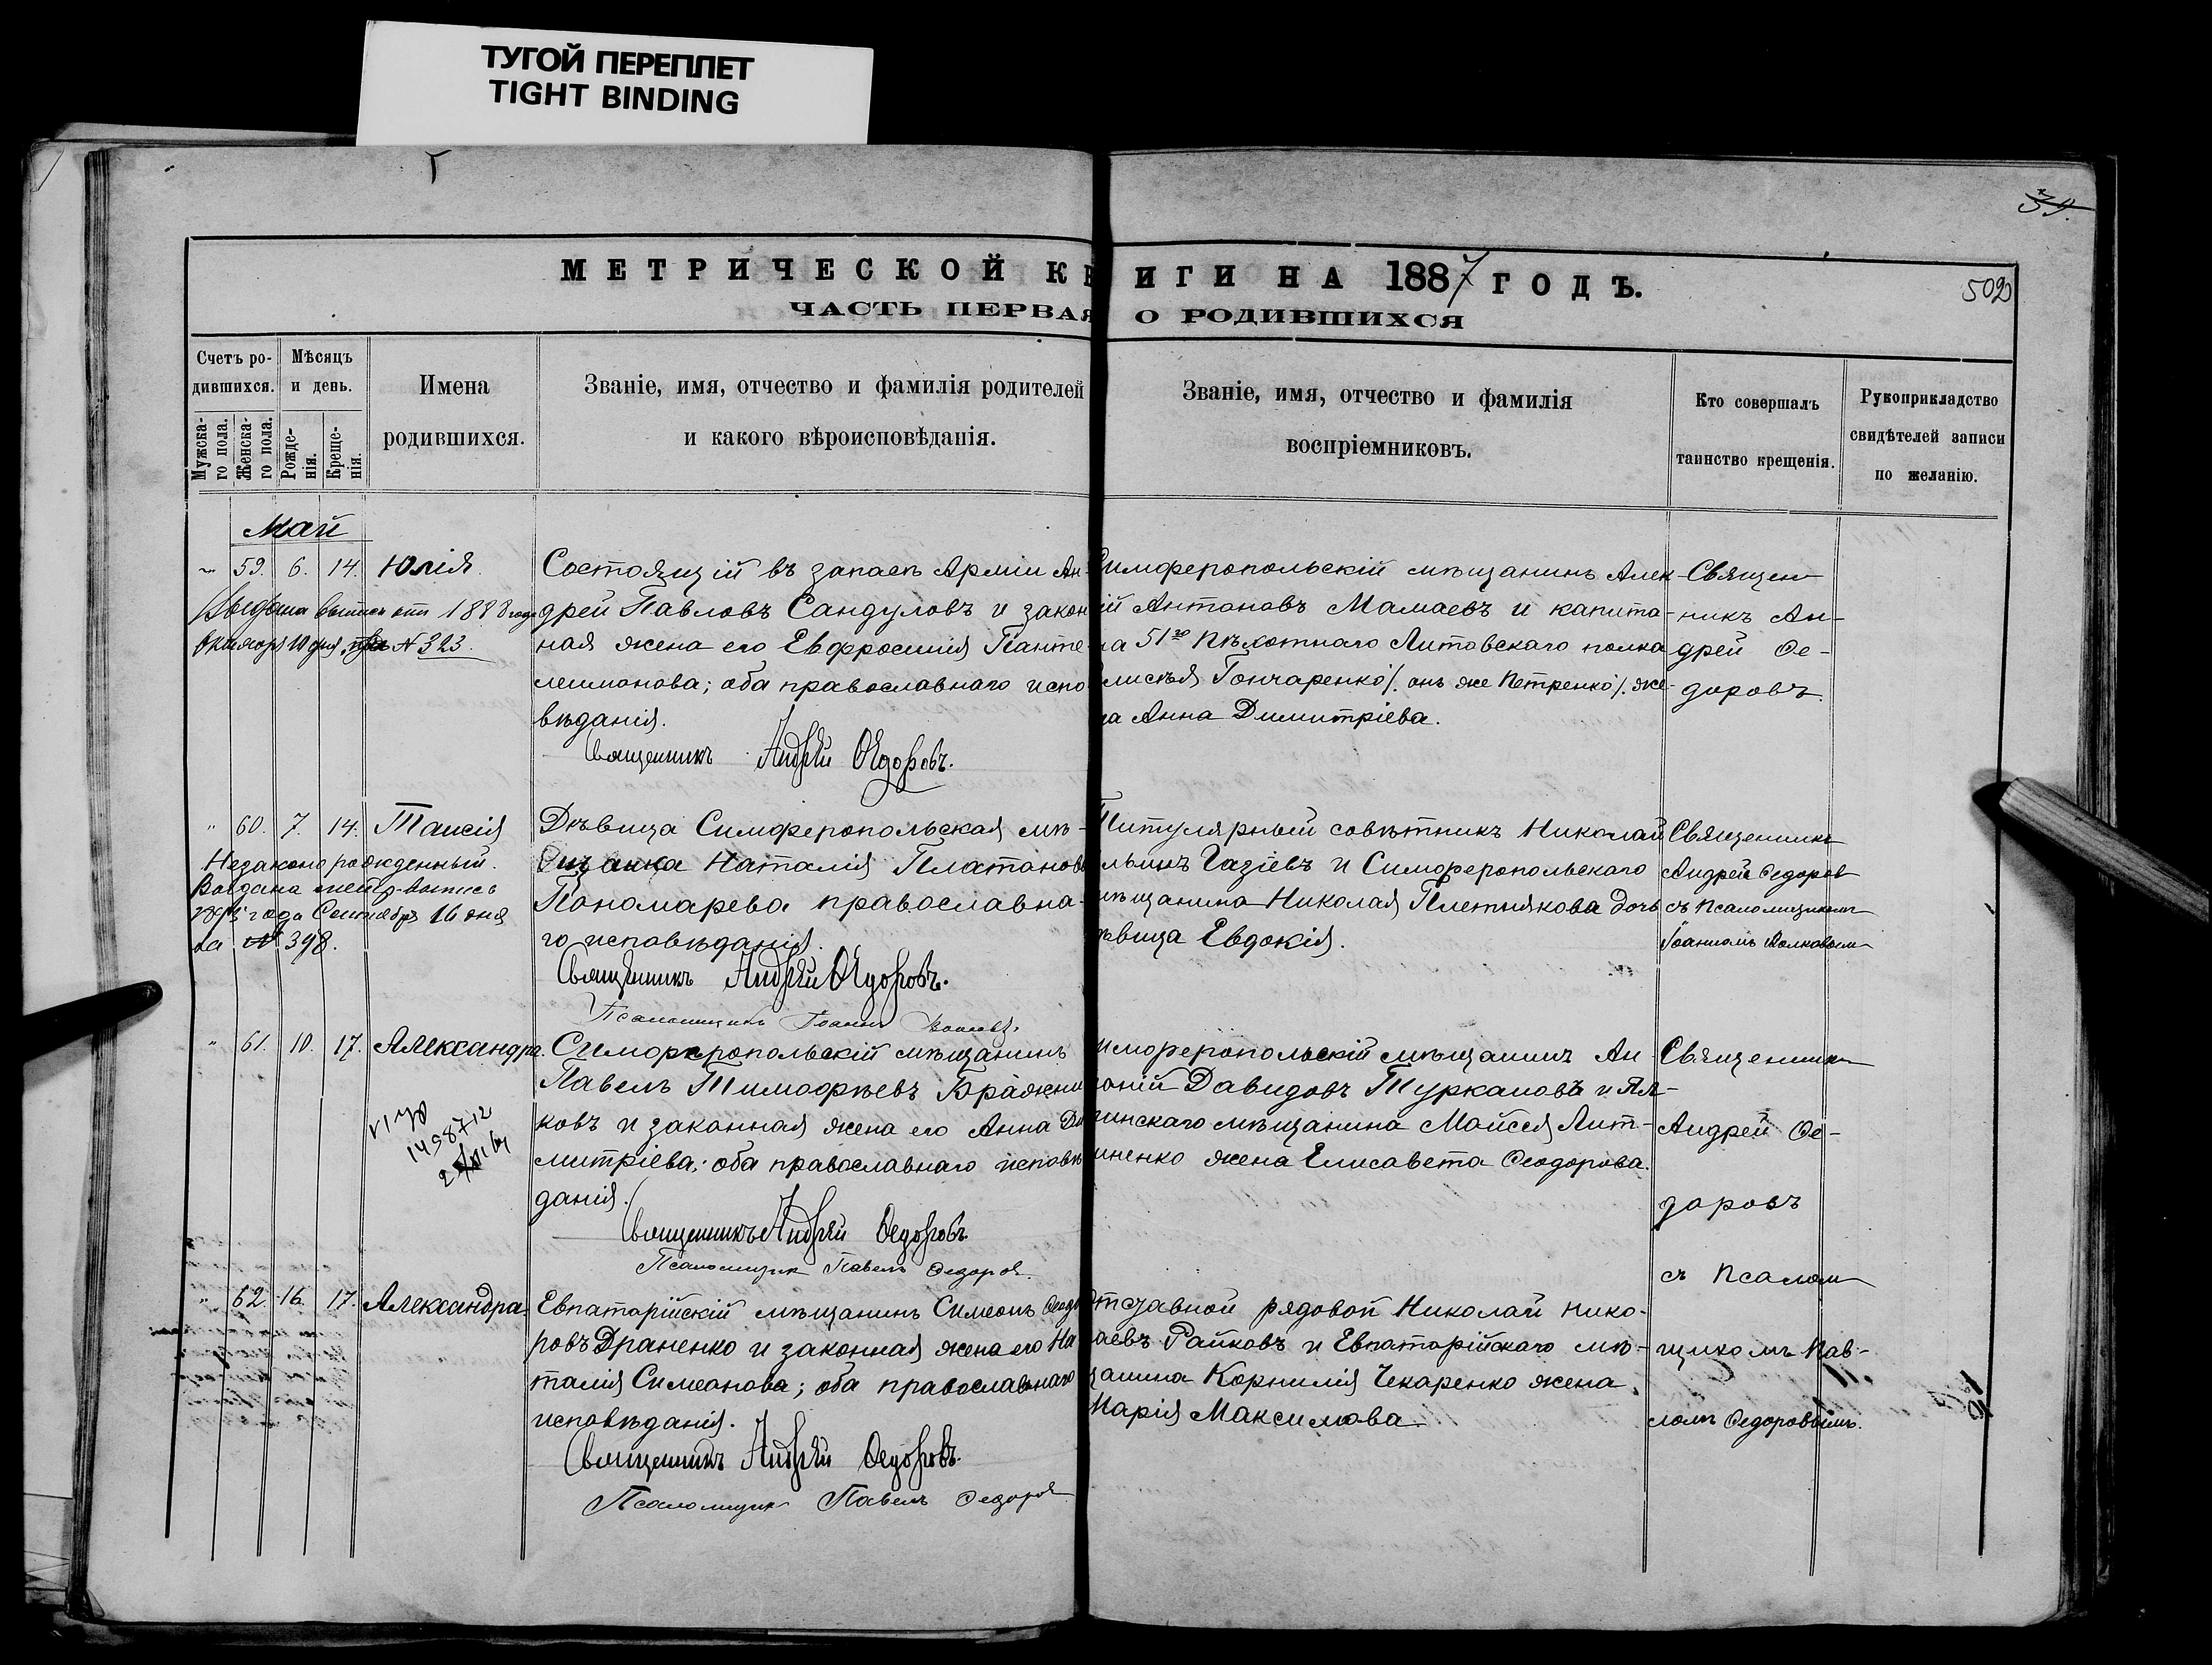 ТУГОЙ ПЕРЕПЛЕТ
TIGHT BINDING
39.
МЕТРИЧЕСКОЙ КНИГИ НА 1887 ГОДЪ.
502
ЧАСТЬ ПЕРВАЯ О РОДИВШИХСЯ
Счетъ родившихся.
Мужска-го пола.
Женска-го пола.
Мѣсяцъ и день.
Рожде-нія.
Креще-нія.
Имена
родившихся.
Званіе, имя, отчество и фамилія родителей
и какого вѣроисповѣданія.
Званіе, имя, отчество и фамилія
воспріемниковъ.
Кто совершалъ
таинство крещенія.
Рукоприкладство
свидѣтелей записи
по желанію.
Май
59. 6. 14. Юлія
Выдана выпись 1888 года
октября 10 дня № 323.
Состоящій въ запасѣ Арміи Ан-
дрей Павловъ Сандуловъ и закон
ная жена его Евфросинія Панте-
леимонова; оба православнаго испо
вѣданія.
Священникъ Андрей Ѳедоровъ.
Симферопольскій мѣщанинъ Алек-
ій Антоновъ Мамаевъ и капита-
на 51го Пѣхотнаго Литовскаго полка
Елисѣя Гончаренко /. онъ же Петренко /. же-
на Анна Димитріева.
Священ
никъ Ан-
дрей Ѳе-
доровъ.
" 60. 7. 14. Таисія
Незаконорожденный.
Выдана метр. выпись
года Сентября 16 дня
за № 398.
Дѣвица Симферопольская мѣ-
щанка Наталія Платонов
Пономарева православна-
го исповѣданія.
Священникъ Андрей Ѳедоровъ.
Псаломщикъ Іоаннъ
Титулярный совѣтникъ Николай
льинъ Газіевъ и Симферопольскаго
мѣщанина Николая Плетнякова дочь
ѣвица Евдокія.
Священникъ
Андрей Ѳедоров
съ псаломщикомъ
Іоанномъ Волковым
" 61. 10. 17. Александра.
1498712
Симферопольскій мѣщанинъ
Павелъ Тимофѣевъ Бражни
ковъ и законная жена его Анна Ди
митріева; оба православнаго исповѣ
данія.
Священникъ Андрей Ѳедоровъ
Псаломщик Павелъ Ѳедоров
имферопольскій мѣщанинъ Ан-
оній Давидовъ Туркаповъ и Ял-
тинскаго мѣщанина Моисея Лит-
иненко жена Елисавета Ѳеодорова.
Священник
Андрей Ѳе-
доровъ
съ Псалом
щикомъ Пав-
ломъ Ѳедоровымъ.
" 62. 16. 17. Александра.
Евпаторійскій мѣщанинъ Симеонъ Ѳеодо
ровъ Драненко и законная жена его На
талія Симеонова; оба православнаго
исповѣданія.
Священникъ Андрей Ѳедоровъ.
Псаломщик Павелъ Ѳедоров
Отставной рядовой Николай Нико-
лаевъ Райковъ и Евпаторійскаго мѣ-
щанина Корнилія Чекаренко жена
Марія Максимова.